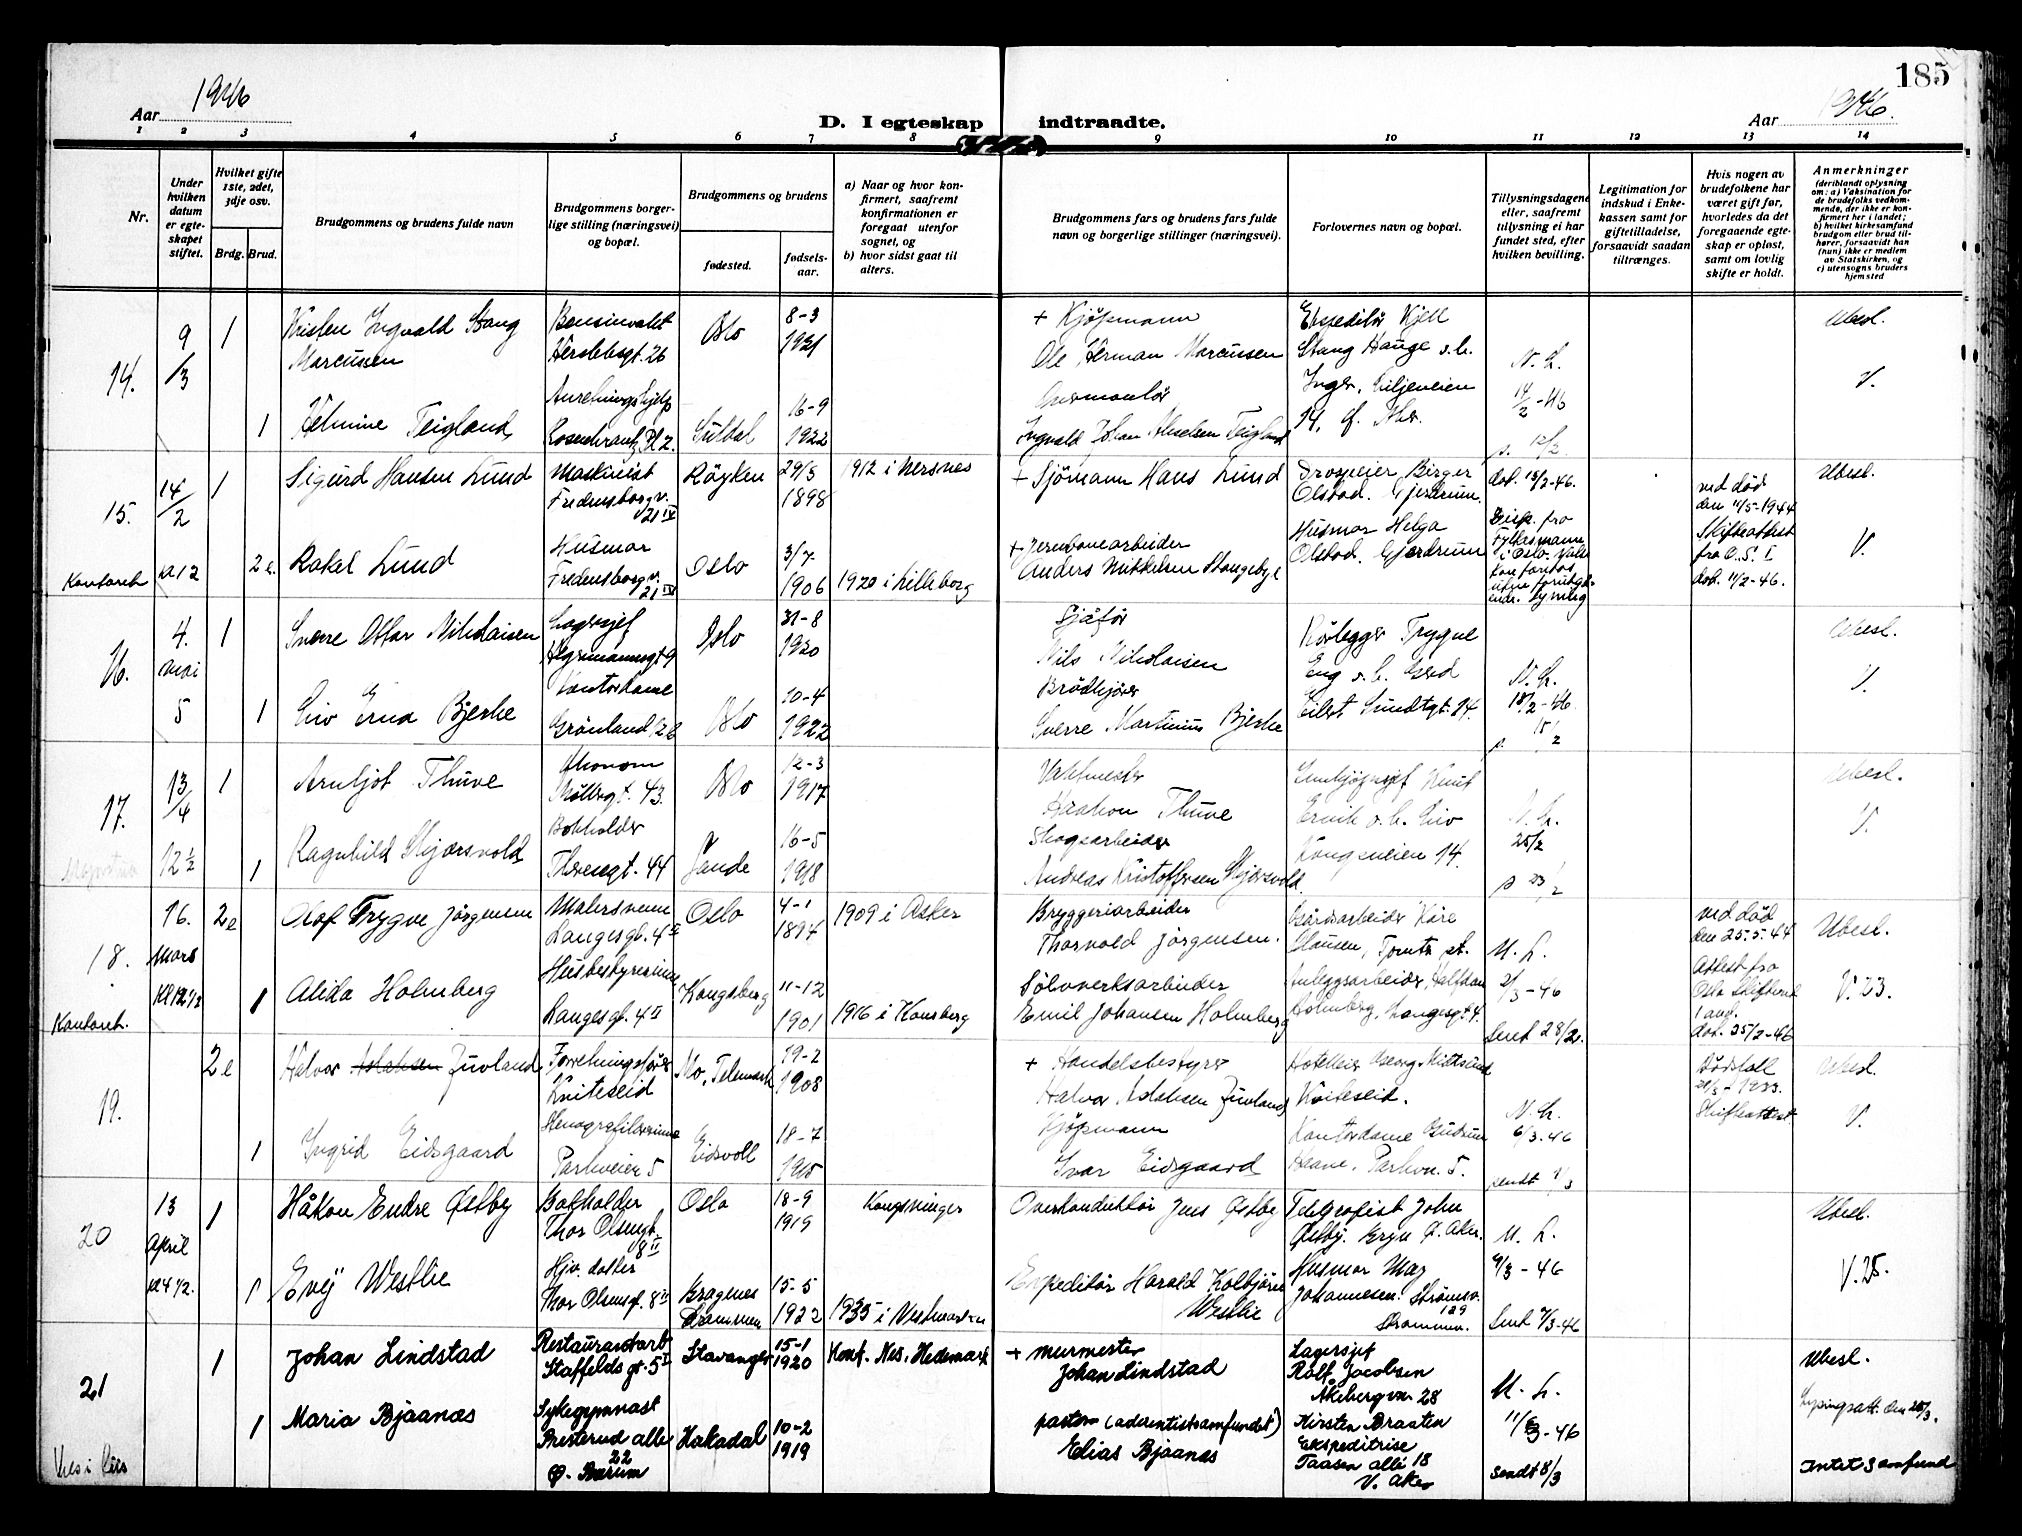 185
Aar 1946
D. I egteskap indtraadte.
Aar 1946.
1 2 3 4 5 6 7 8 9 10 11 12 13 14
Nr.
Under hvilken datum er egteskapet stiftet.
Hvilket gifte 1ste, 2det, 3dje osv.
Brdg. Brud.
Brudgommens og brudens fulde navn
Brudgommens borgerlige stilling (næringsvei) og bopæl.
Brudgommens og brudens
fødested.
fødselsaar.
a) Naar og hvor konfirmert, saafremt konfirmationen er foregaat utenfor sognet, og
b) hvor sidst gaat til alters.
Brudgommens fars og brudens fars fulde navn og borgerlige stillinger (næringsvei).
Forlovernes navn og bopæl.
Tillysningsdagene eller, saafremt tillysning ei har fundet sted, efter hvilken bevilling.
Legitimation for indskud i Enkekassen samt for giftetilladelse, forsaavidt saadan tiltrænges.
Hvis nogen av brudefolkene har været gift før, hvorledes da det foregaaende egteskap er opløst, samt om lovlig skifte er holdt.
Anmerkninger
(deriblandt oplysning om: a) Vaksination for de brudefolks vedkommende, der ikke er konfirmert her i landet; b) hvilket kirkesamfund brudgom eller brud tilhører, forsaavidt han (hun) ikke er medlem av Statskirken, og c) utensogns bruders hjemsted
14.
9/3
1
Kristen Ingvald Stang Marcussen
Herslebsgt. 26
Oslo
8-3 1921
+ Kjøpmann
Ole Herman Marcussen
Ekspeditør Kjell Stang Hauge o.h. Inger, Liljeveien 14, Ø. Aker.
14/2-46
12/2
Ubesl.
V.
1
Helmine Teigland
Rosenkrantz Pl 2.
Suldal
16-9 1922
Ingvald Johan Teigland
15.
14/2
kl 12
Kontoret
1
Sigurd Hansen Lund
Maskinist
Fredensborgv. 21 IV
Røyken
29/5 1898
1912 i Nersnes
+ Sjømann Hans Lund
Drosjeeier Birger Olstad. Gjerdrum.
dat. 13/2-46.
ved død den 11/5-1944
Skifteattest fra O.S. I dat. 11/2-46.
Ubesl.
V.
2e.
Rakel Lund
Husmor
Fredensborgv. 21 IV
Oslo
3/7 1906
1920 i Lilleborg
+ Jernbanearbeider
Anders Mikkelsen Stangebye
Husmor Helga Olstad. Gjerdrum
Disp. fra Fylkesmannen i Oslo.
16.
4. mai
5
1
Sverre Ottar Nikolaisen
Lagersjef
Hegermannsgt 9
Oslo
31-8 1920
Sjåfør
Nils Nikolaisen
Rørlegger Trygve Eng o.h. Gerd
Eilert Sundtgt. 14.
18/2-46
15/2
Ubesl.
V.
1
Liv Erna Bjerke
Kontordame
Grønland 28
Oslo
10-4 1922
Brødkjører
Sverre Martinius Bjerke
17.
13/4
12 1/2
1
Arnljot Thuve
Økonom
Møllergt. 43.
Oslo
12-3 1917
Vaktmester
Haakon Thuve
Innkjøpssjef Knut Ervik o.h. Liv
Kongsveien 14.
25/2
23/2
Ubesl.
V.
1
Ragnhild Skjærsvold
Bokholder
Theresgt. 44
Sande
16-5 1918
Skogsarbeider
Andreas Kristoffersen Skjærsvold.
18.
16. Mars
Kl 12 1/2
Kontoret.
2e
Olaf Trygve Jørgensen
Malersvenn
Langesgt. 4 II
Oslo
4-1 1894
1909 i Asker
Bryggeriarbeider
Thorvald Jørgensen.
Gårdsarbeider Kåre Clausen, Tomter st.
M. L.
2/3-46
Sendt 28/2.
ved død den 25.5.44
Attest fra Oslo Skifterett 1 avd. dat. 25/2-46
Ubesl.
V. 23.
1
Alida Holmberg
Husbestyrerinne
Langesgt. 4 II
Kongsberg
11-12 1901
1916 i Konsberg
Sølvverksarbeider
Emil Johansen Holmberg
Anleggsarbeider Halfdan Holmberg, Langesgt 4.
19.
2e
Halvor Aslaksen Juvland
Forretningsfører
Kviteseid
Mo, Telemark
19-2 1908
+ Handelsbestyrer
Halvor Aslaksen Juvland
Hotelleier Georg
Kviteseid.
6/3-46
sendt 1/3
Dødsfall
Skifteattest
Ubesl.
V.
1
Ingrid Eidsgaard
Stenografilærerinne
Parkveien 5
Eidsvoll
18-7
Kjøpmann
Ivar Eidsgaard
Kontordame Gudrun Haave, Parkvn. 5.
20
13 April
kl 4 1/2.
1
Håkon Endre Østby
Bokholder
Thor Olsensgt. 8 II
Oslo
18-9 1919
Kongsvinger
Overkonduktør Jens Østby
Telegrafist John Østby. Ø. Aker.
M. L.
9/3-46
Sendt 7/3-46
Ubesl.
V. 25.
1
Evy Westlie
Hjv. datter
Thor Olsensgt. 8 II
Bragenes Drammen
15-5 1922
1935 i
Expeditør Harald Kolbjørn Westlie
Husmor May Johannesen. Strømsv. 129 Drammen.
21
1
Johan Lindstad
Restaurantarb.
Staffelds gt. 5 I
Stavanger
15-1 1920
Konf. Nes, Hedemark
+ murmester
Johan Lindstad
Lagersjef
Rolf Jacobsen
Åkebergvn 28
M. L.
11/3-46
sendt 8/3
Ubesl.
1
Maria Bjaanæs
Sykegymnast
Presterud alle 22
Ø. Bærum
Hakadal
10-2 1919
pastor (adventistsamfundet)
Elias Bjaanæs
Kirsten Braaten
Ekspeditrise
Taasen allé 18
V. Aker
intet samfund